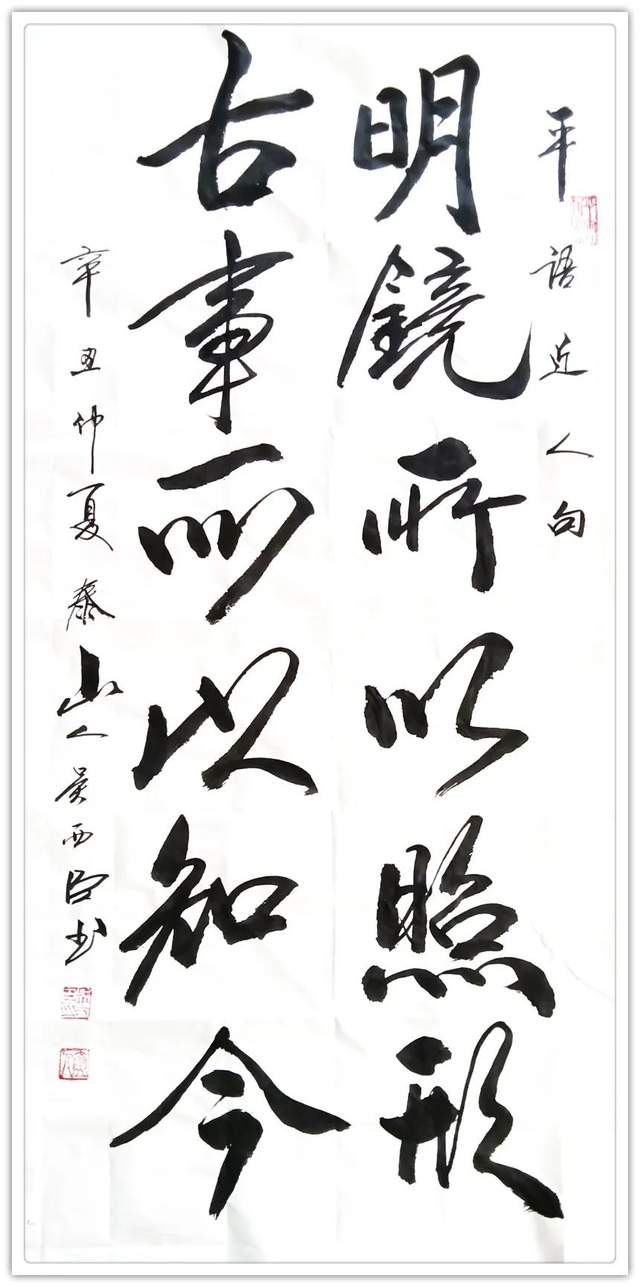 平語近人句
明鏡所以照形
古事所以知今
辛丑仲夏泰山人吴西臣书